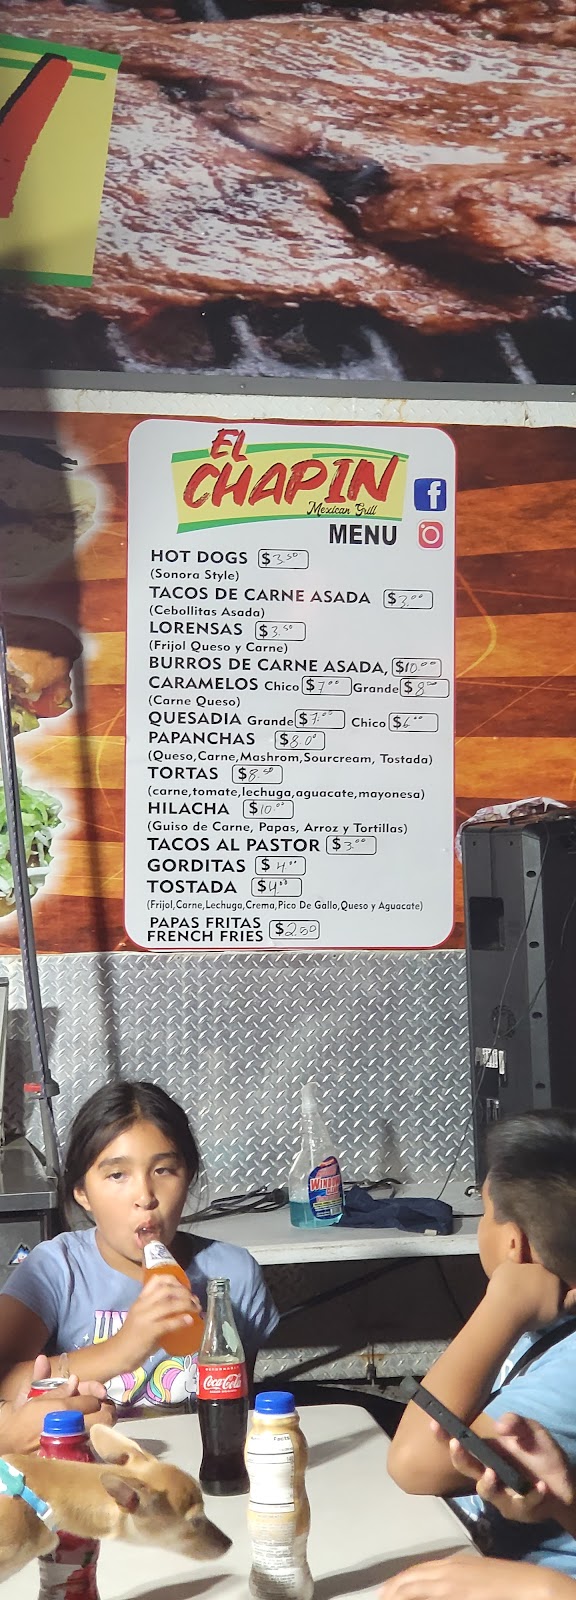 EL
CHAPIN
Mexican Grill
f
MENU
HOT DOGS $3.50
(Sonora Style)
TACOS DE CARNE ASADA $3.00
(Cebollitas Asada)
LORENSAS $3.50
(Frijol Queso y Carne)
BURROS DE CARNE ASADA, $10.00
CARAMELOS Chico $7.00 Grande $8.00
(Carne Queso)
QUESADIA Grande $7.00 Chico $6.00
PAPANCHAS $8.00
(Queso,Carne,Mashrom,Sourcream, Tostada)
TORTAS $8.50
(carne,tomate,lechuga,aguacate,mayonesa)
HILACHA $10.00
(Guiso de Carne, Papas, Arroz y Tortillas)
TACOS AL PASTOR $3.00
GORDITAS $4.00
TOSTADA $4.00
(Frijol,Carne,Lechuga,Crema,Pico De Gallo,Queso y Aguacate)
PAPAS FRITAS
FRENCH FRIES $2.50
WINDEX
Coca-Cola